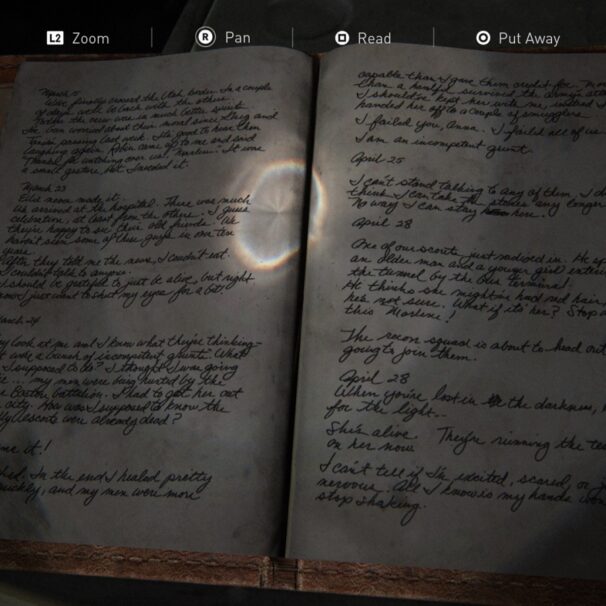 L2 Zoom
R Pan
Read
Put Away
March 15
We've finally crossed the Utah border. In a couple
of days we'll be back with the others.
the crew are in much better spirits
I've been worried about their morale since Greg and
crossing last week. It's good to hear them
laughing again. Robin came up to me and said
"Thanks for watching over us, Marlene." It was
a small gesture but I needed it.
March 23
Ellie never made it.
We arrived at the hospital. There was much
celebration, at least from the others. I guess
they're happy to see their old friends. We
haven't seen some of these guys in over ten
years.
After they told me the news, I couldn't eat.
I couldn't talk to anyone.
I should be grateful to just be alive, but right
now I just want to shut my eyes for a bit!
March 24
look at me and I know what they're thinking-
was a bunch of incompetent grunts. What
I supposed to do? I thought I was going
... my men were being hunted by the
Boston battalion. I had to get her out
city. How was I supposed to know the
escorts were already dead?
me it!
In the end I healed pretty
quickly, and my men were more
capable than I gave them credit for.
than a handful survived the
I should've kept her with me, instead I
handed her off to a couple of smugglers
I failed you, Anna. I failed all of us
I am an incompetent grunt.
April 25
I can't stand talking to any of them. I
think I can take the stares any longer
No way I can stay here.
April 28
One of our scouts just radioed in. He
an older man and a younger girl
the tunnel by the bus terminal.
He thinks she might've had red hair
he's not sure. What if it's her? Stop
this Marlene!
The recon squad is about to head out
going to join them.
April 28
When you're lost in the darkness,
for the light..
She's alive. They're running the
on her now
I can't tell if I'm excited, scared, or
nervous. All I know is my hands
stop shaking.